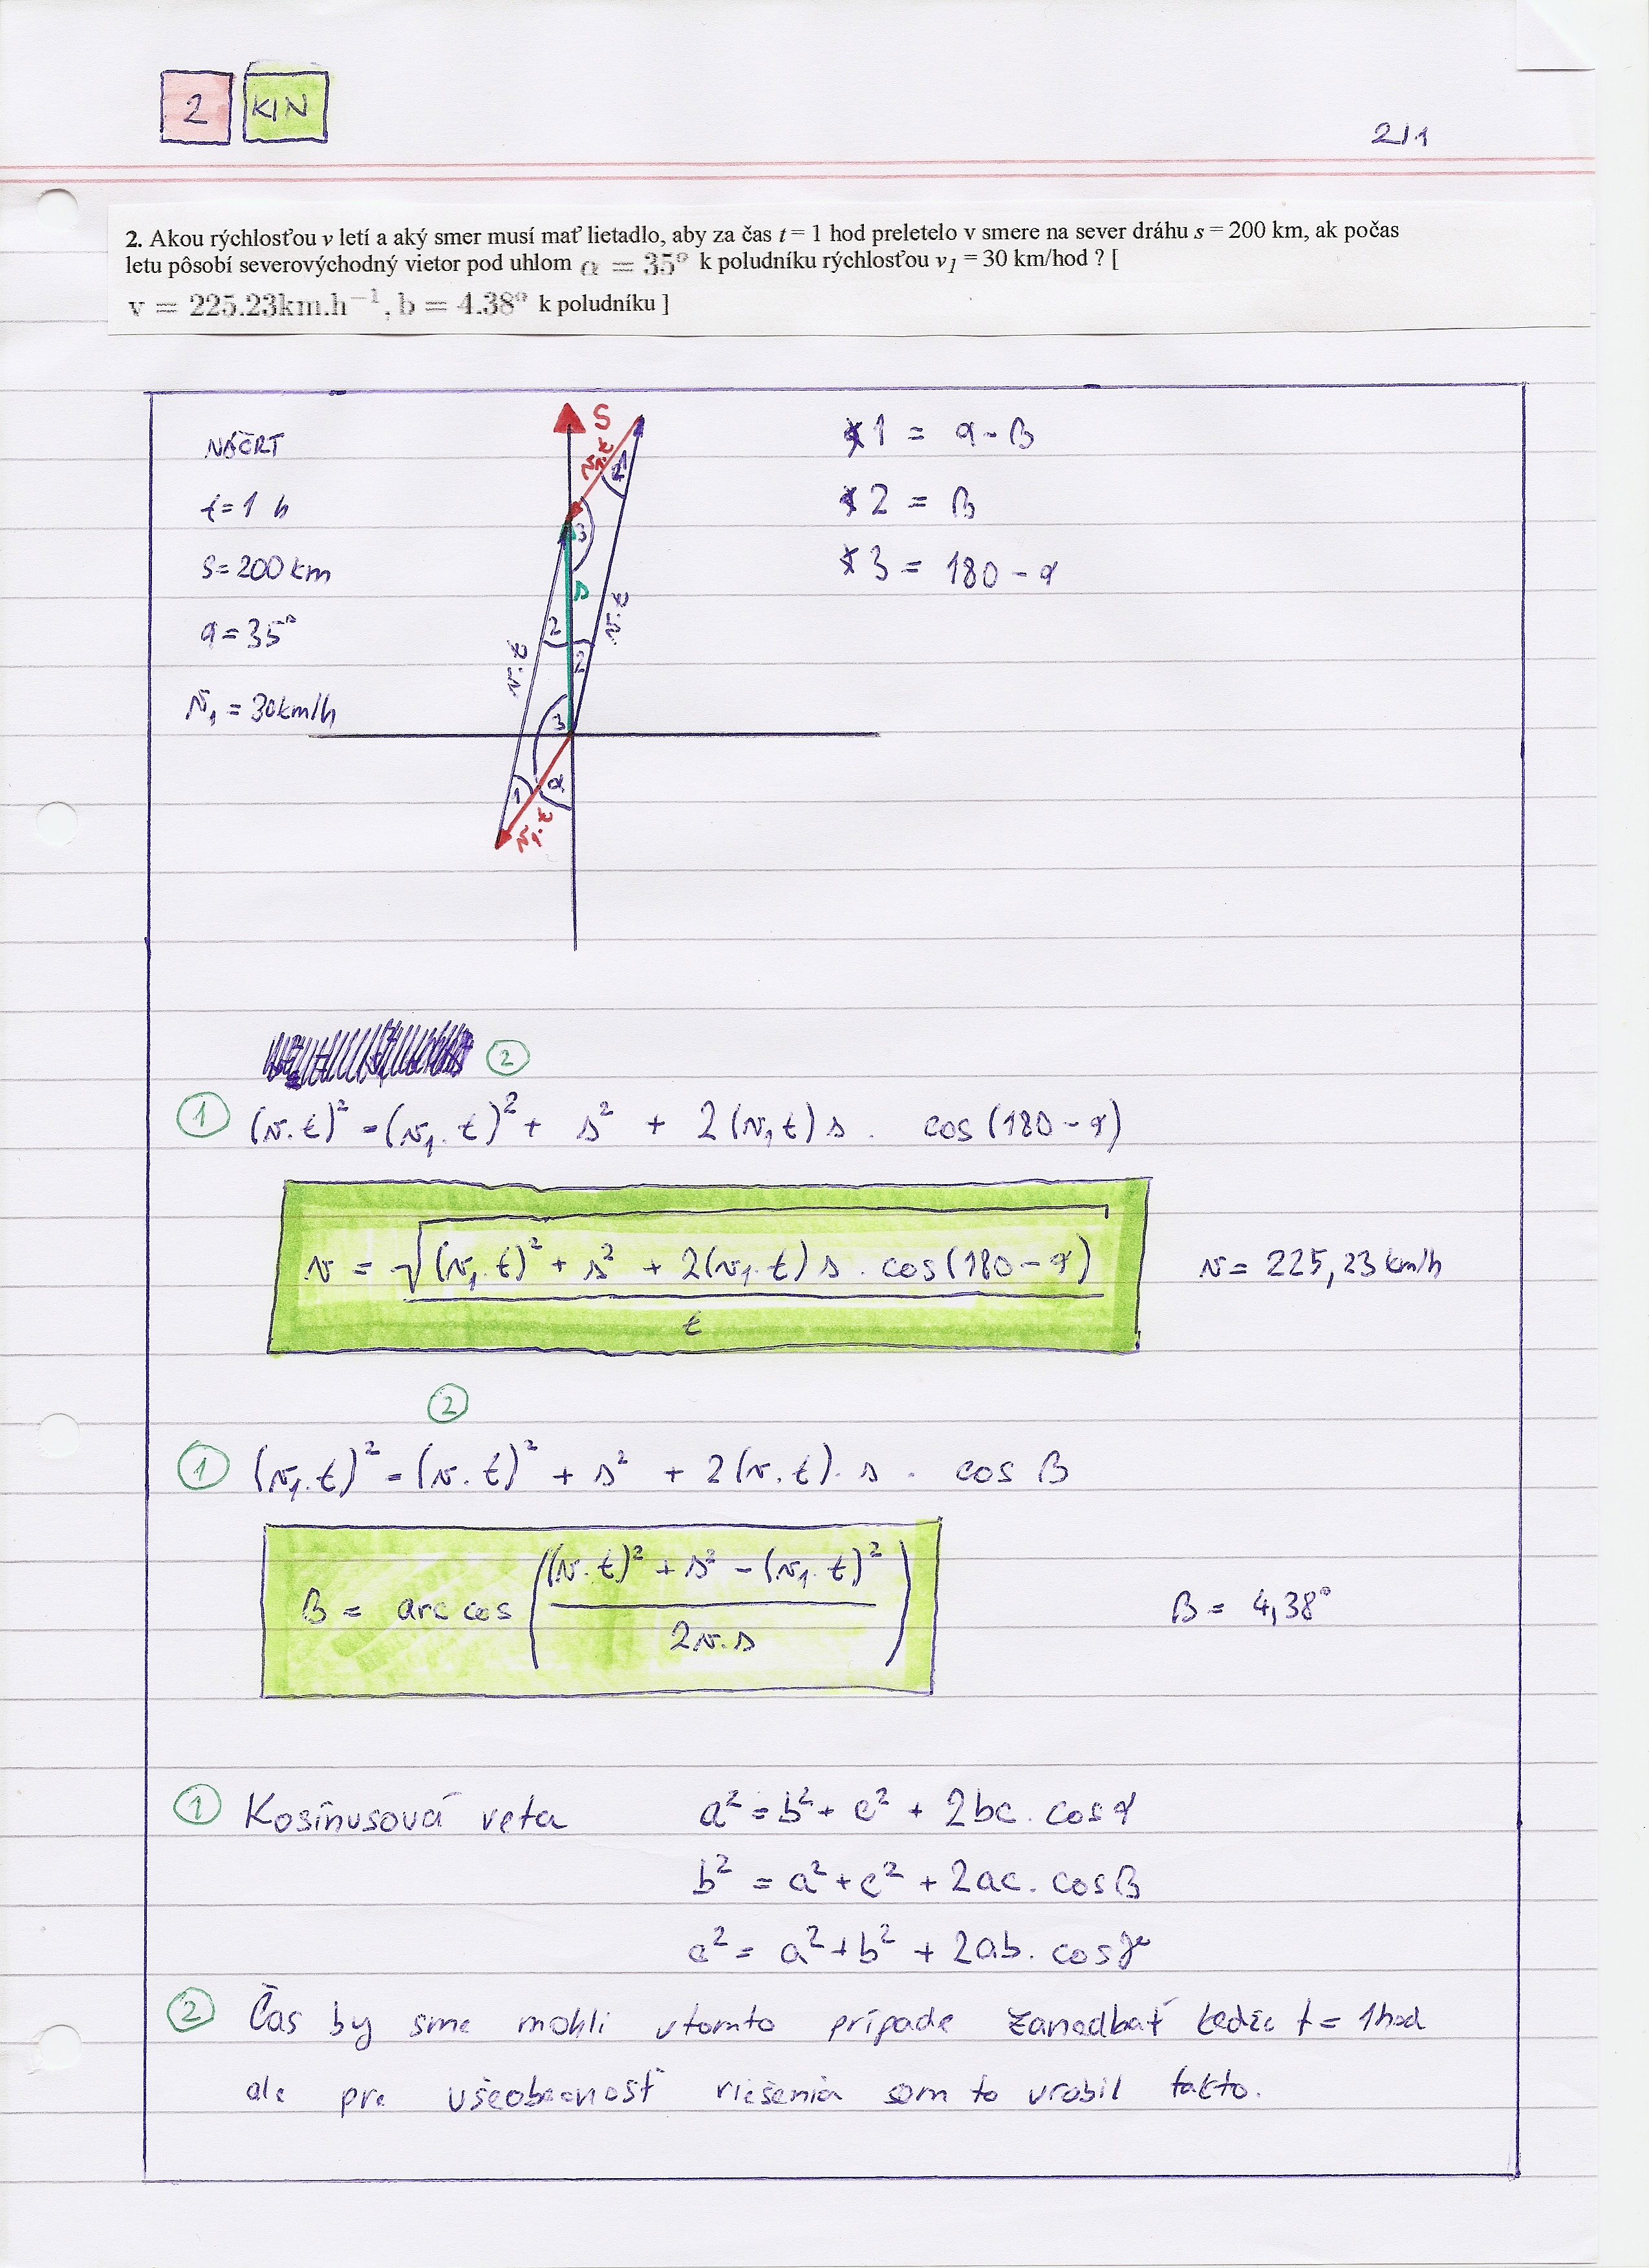 2 KIN
2/1
2. Akou rýchlosťou v letí a aký smer musí mať lietadlo, aby za čas t = 1 hod preletelo v smere na sever dráhu s = 200 km, ak počas
letu pôsobí severovýchodný vietor pod uhlom α = 35° k poludníku rýchlosťou v₁ = 30 km/hod ? [
v = 225.23km.h⁻¹, b = 4.38° k poludníku ]
NÁČRT
t=1 h
s=200 km
α=35°
v₁ = 30km/h
S
v₁.t
∢1
3
s
2
2
v.t
v.t
3
1
α
v₁.t
∢1 = α-β
∢2 = β
∢3 = 180-α
②
① (v.t)² = (v₁.t)² + s² + 2(v₁t)s . cos(180-α)
v = √(v₁.t)² + s² + 2(v₁.t)s . cos(180-α)
t
v = 225,23km/h
②
① (v₁.t)² = (v.t)² + s² + 2(v.t).s . cos β
β = arc cos ((v.t)² + s² - (v₁.t)²
2v.s)
β = 4,38°
① Kosínusová veta a² = b² + c² + 2bc. cos α
b² = a² + c² + 2ac. cosβ
c² = a² + b² + 2ab. cosγ
② Čas by sme mohli vtomto prípade zanedbať kedže t = 1hod
ale pre všeobecnosť riešenia som to urobil takto.